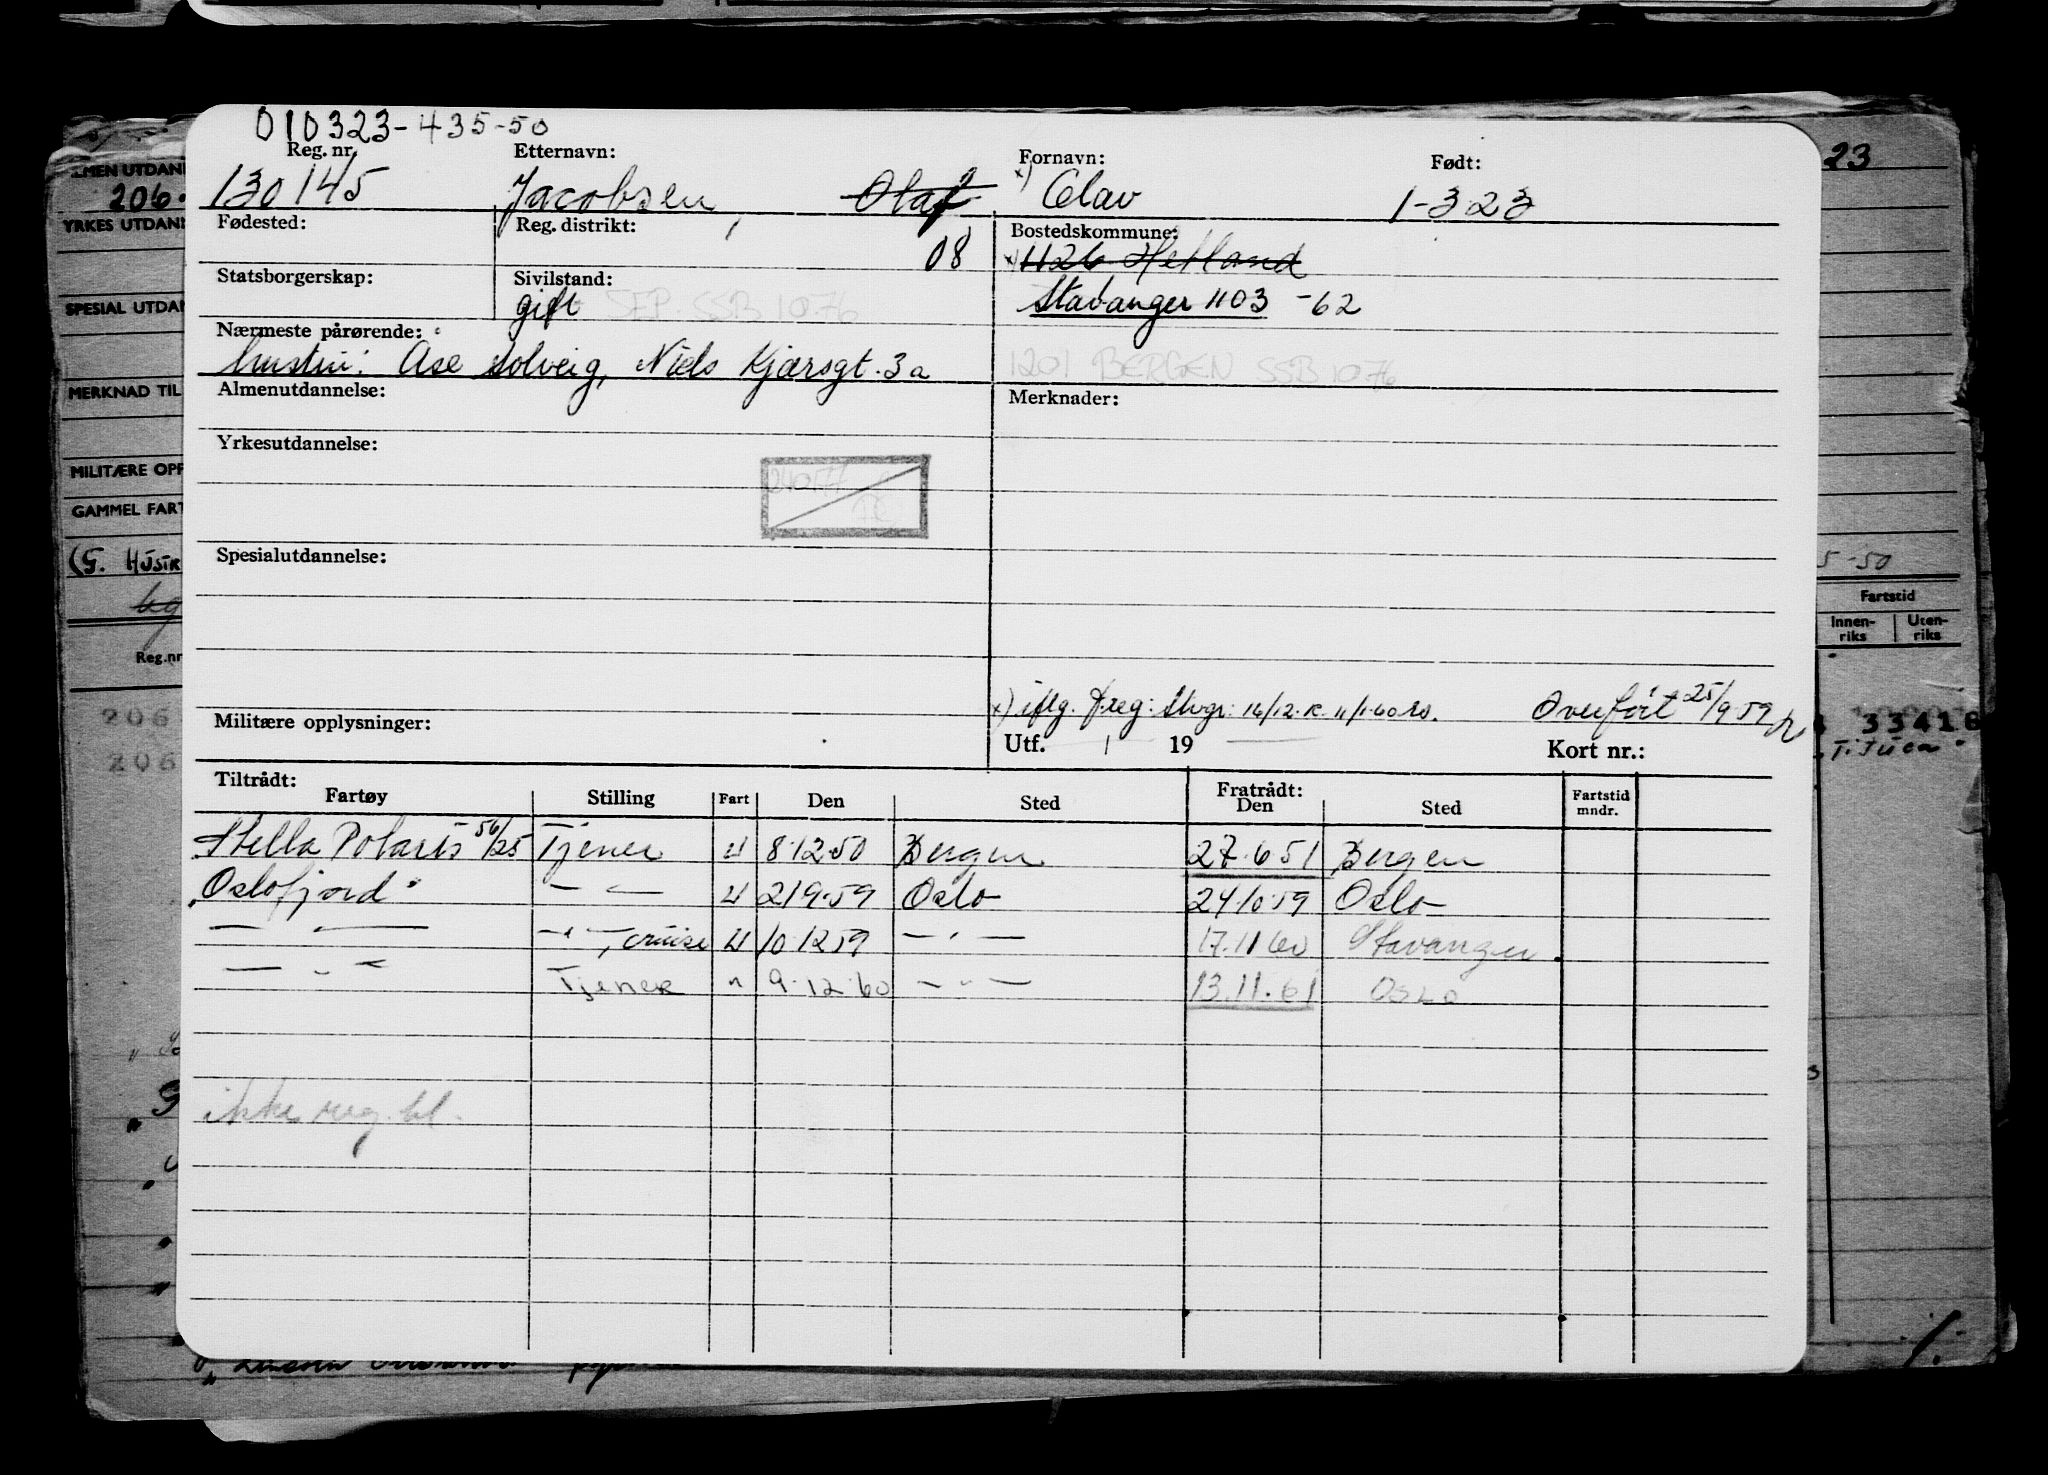 010323-435-50
Reg. nr. Etternavn: Fornavn: Født:
130145 Jacobsen, Olaf x) Olav 1-3 23
Fødested: Reg. distrikt: 08 Bostedskommune:
x) 1126 Hetland
Statsborgerskap: Sivilstand:
gift SEP. SSB 10.76 Stavanger 1103 -62
Nærmeste pårørende:
hustru: Åse Solveig, Niels Kjærsgt. 3a 1201 BERGEN SSB 10.76
Almenutdannelse: Merknader:
Yrkesutdannelse:
Spesialutdannelse:
x) iflg. freg: Stvgr: 14/12. K. 11/1-60 Overført 25/9 59
Militære opplysninger: Utf. / 19 Kort nr.:
Tiltrådt: Fratrådt:
Fartøy Stilling Fart Den Sted Den Sted Fartstid mndr.
Stella Polaris 56/25 Tjener U 8.12.50 Bergen 27.6 51 Bergen
Oslofjord — " — U 21 9.59 Oslo 24.10.59 Oslo
— " — — " —, cruise U 10.12 59 — " — 17.11 60 Stavanger
— " — Tjener " 9.12.60 — " — 13.11.61 OSLO
ikke reg. bl.
23
ALMEN UTDAN
206
YRKES UTDAN
SPESIAL UTDAN
MERKNAD TIL
MILITÆRE OPP
GAMMEL FART
(G. HUSTR
5-50
Fartstid
Innen-riks Uten-riks
Reg.nr
206
206
33418